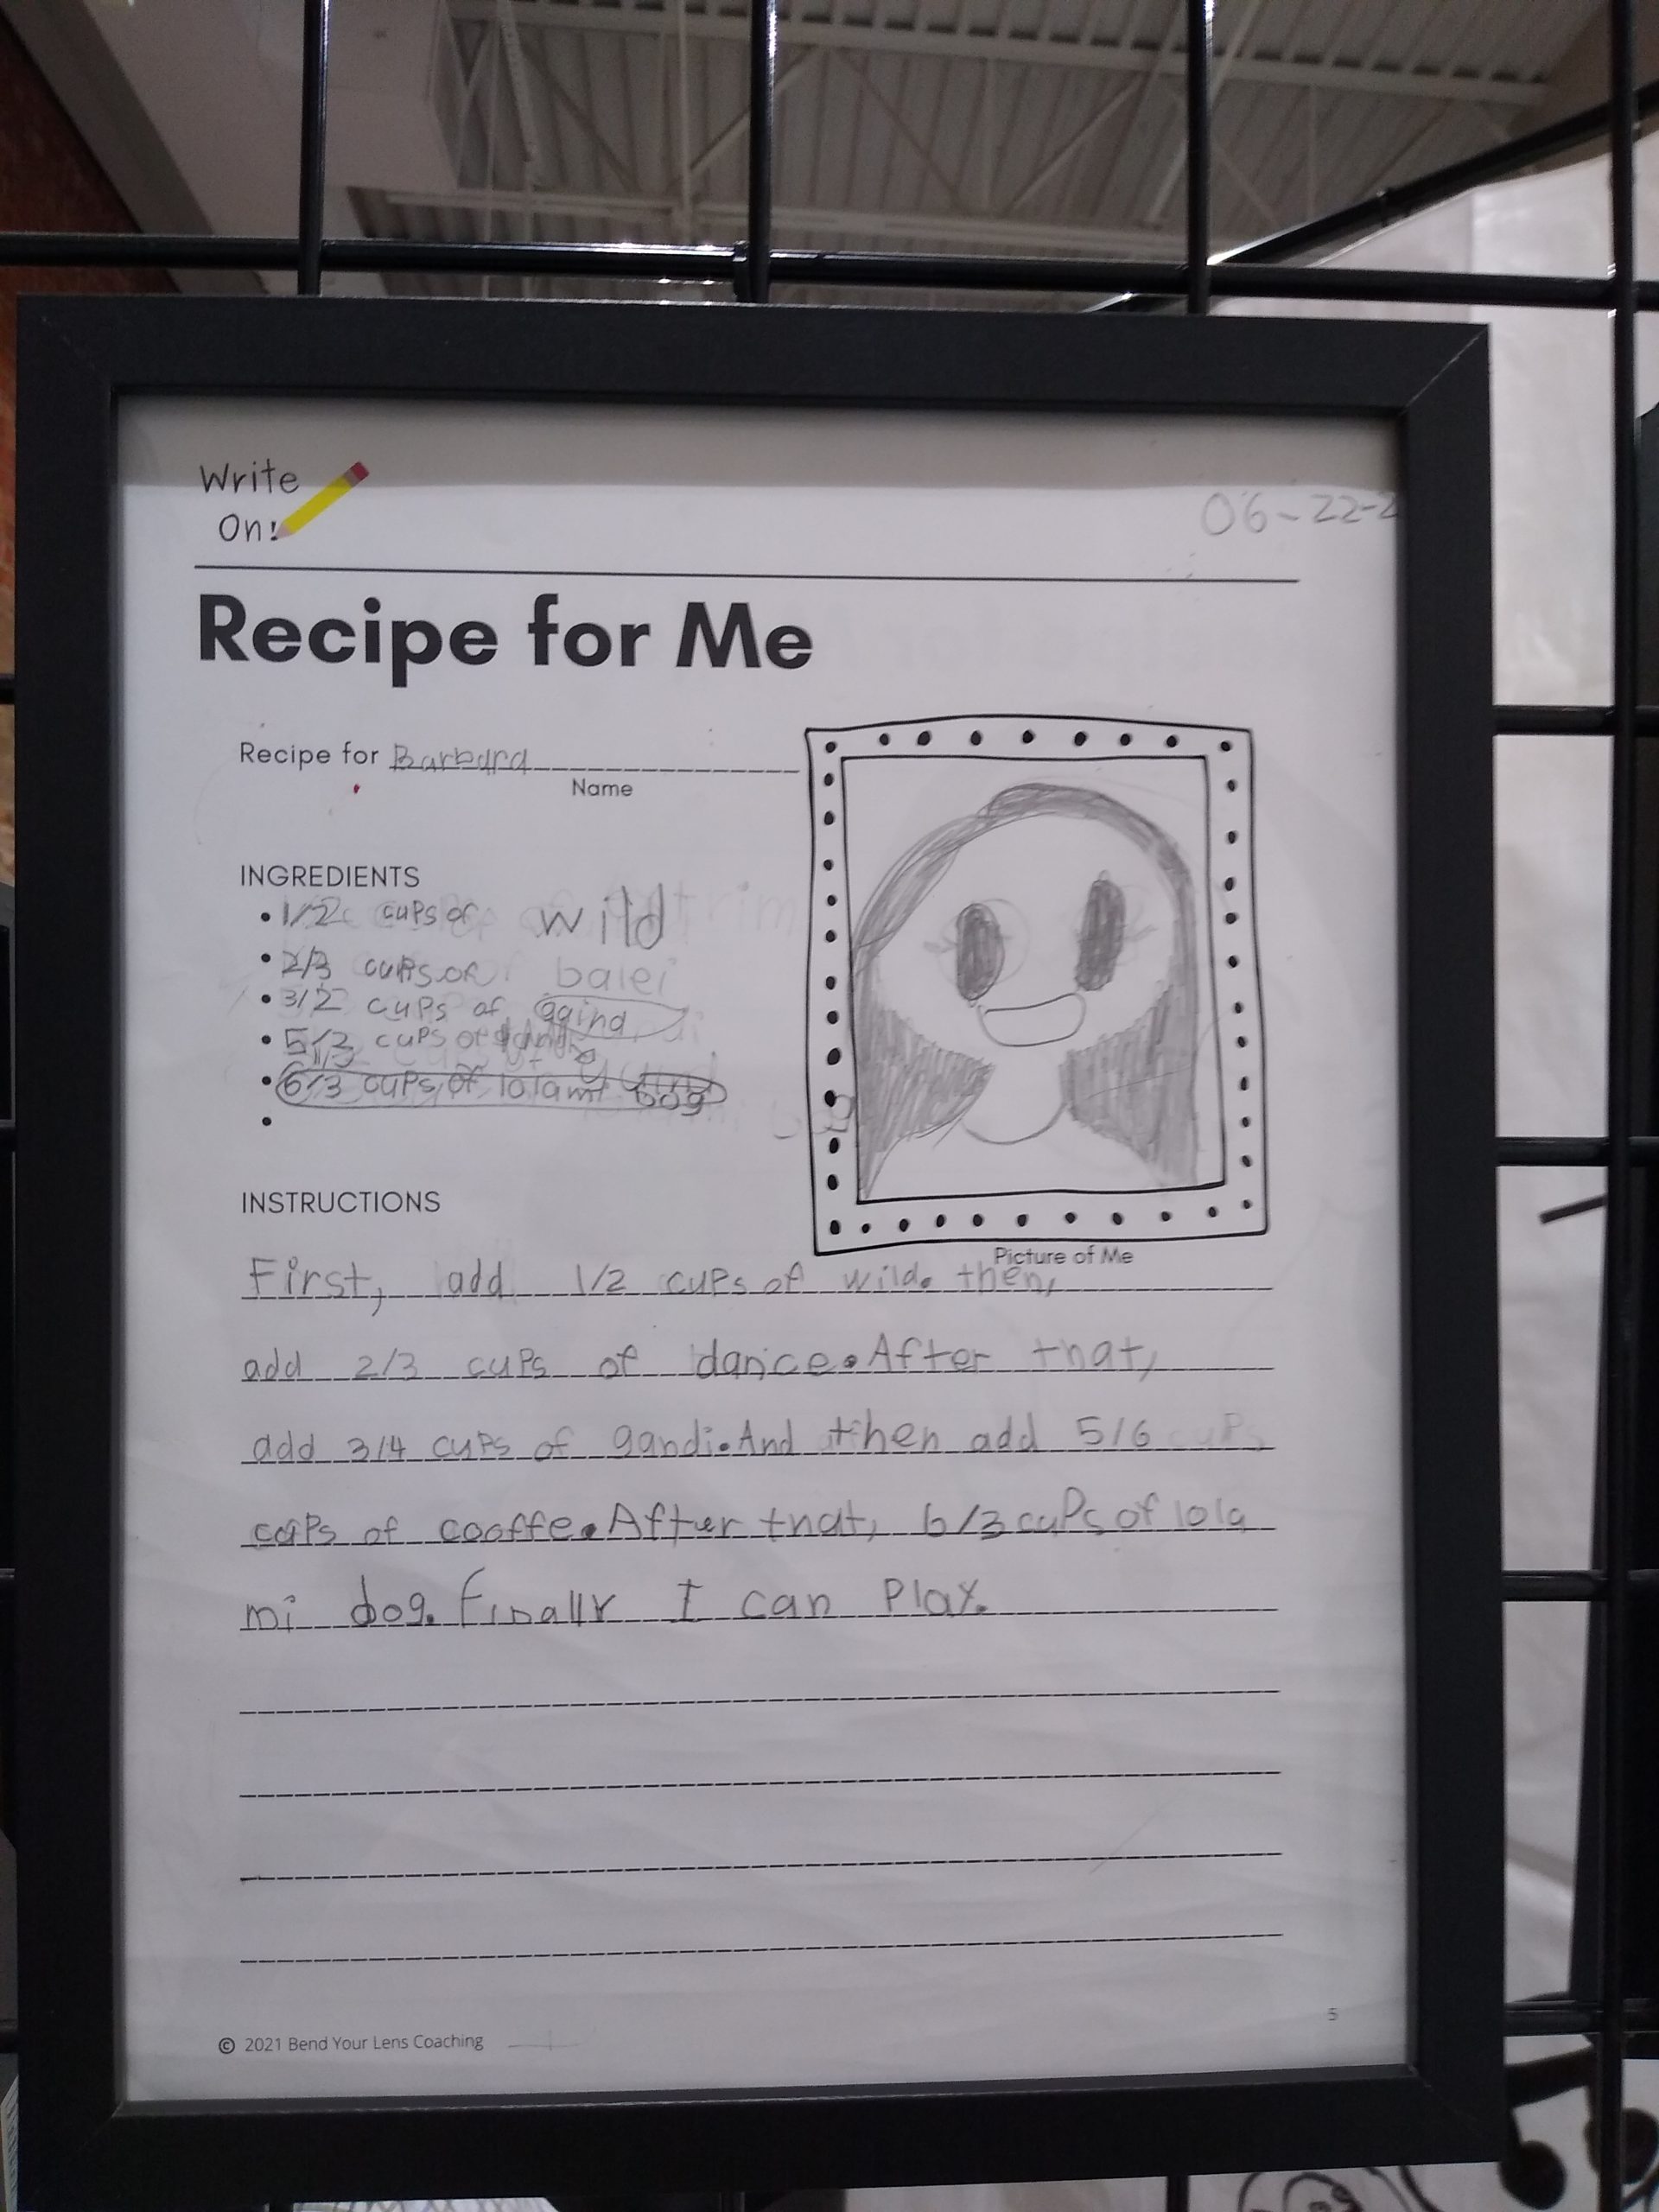 Write
On!
06-22-2
Recipe for Me
Recipe for Barbara
Name
INGREDIENTS
• 1/2 cups of wild
• 2/3 cups of balei
• 3/2 cups of
• 5/3 cups of
• 6/3 cups of lola mi dog
•
Picture of Me
INSTRUCTIONS
First, add 1/2 cups of wild. then,
add 2/3 cups of dance. After that,
add 3/4 cups of gandi. And then add 5/6 cups
cups of cooffe. After that, 6/3 cups of lola
mi dog. Finally I can Play.
5
© 2021 Bend Your Lens Coaching